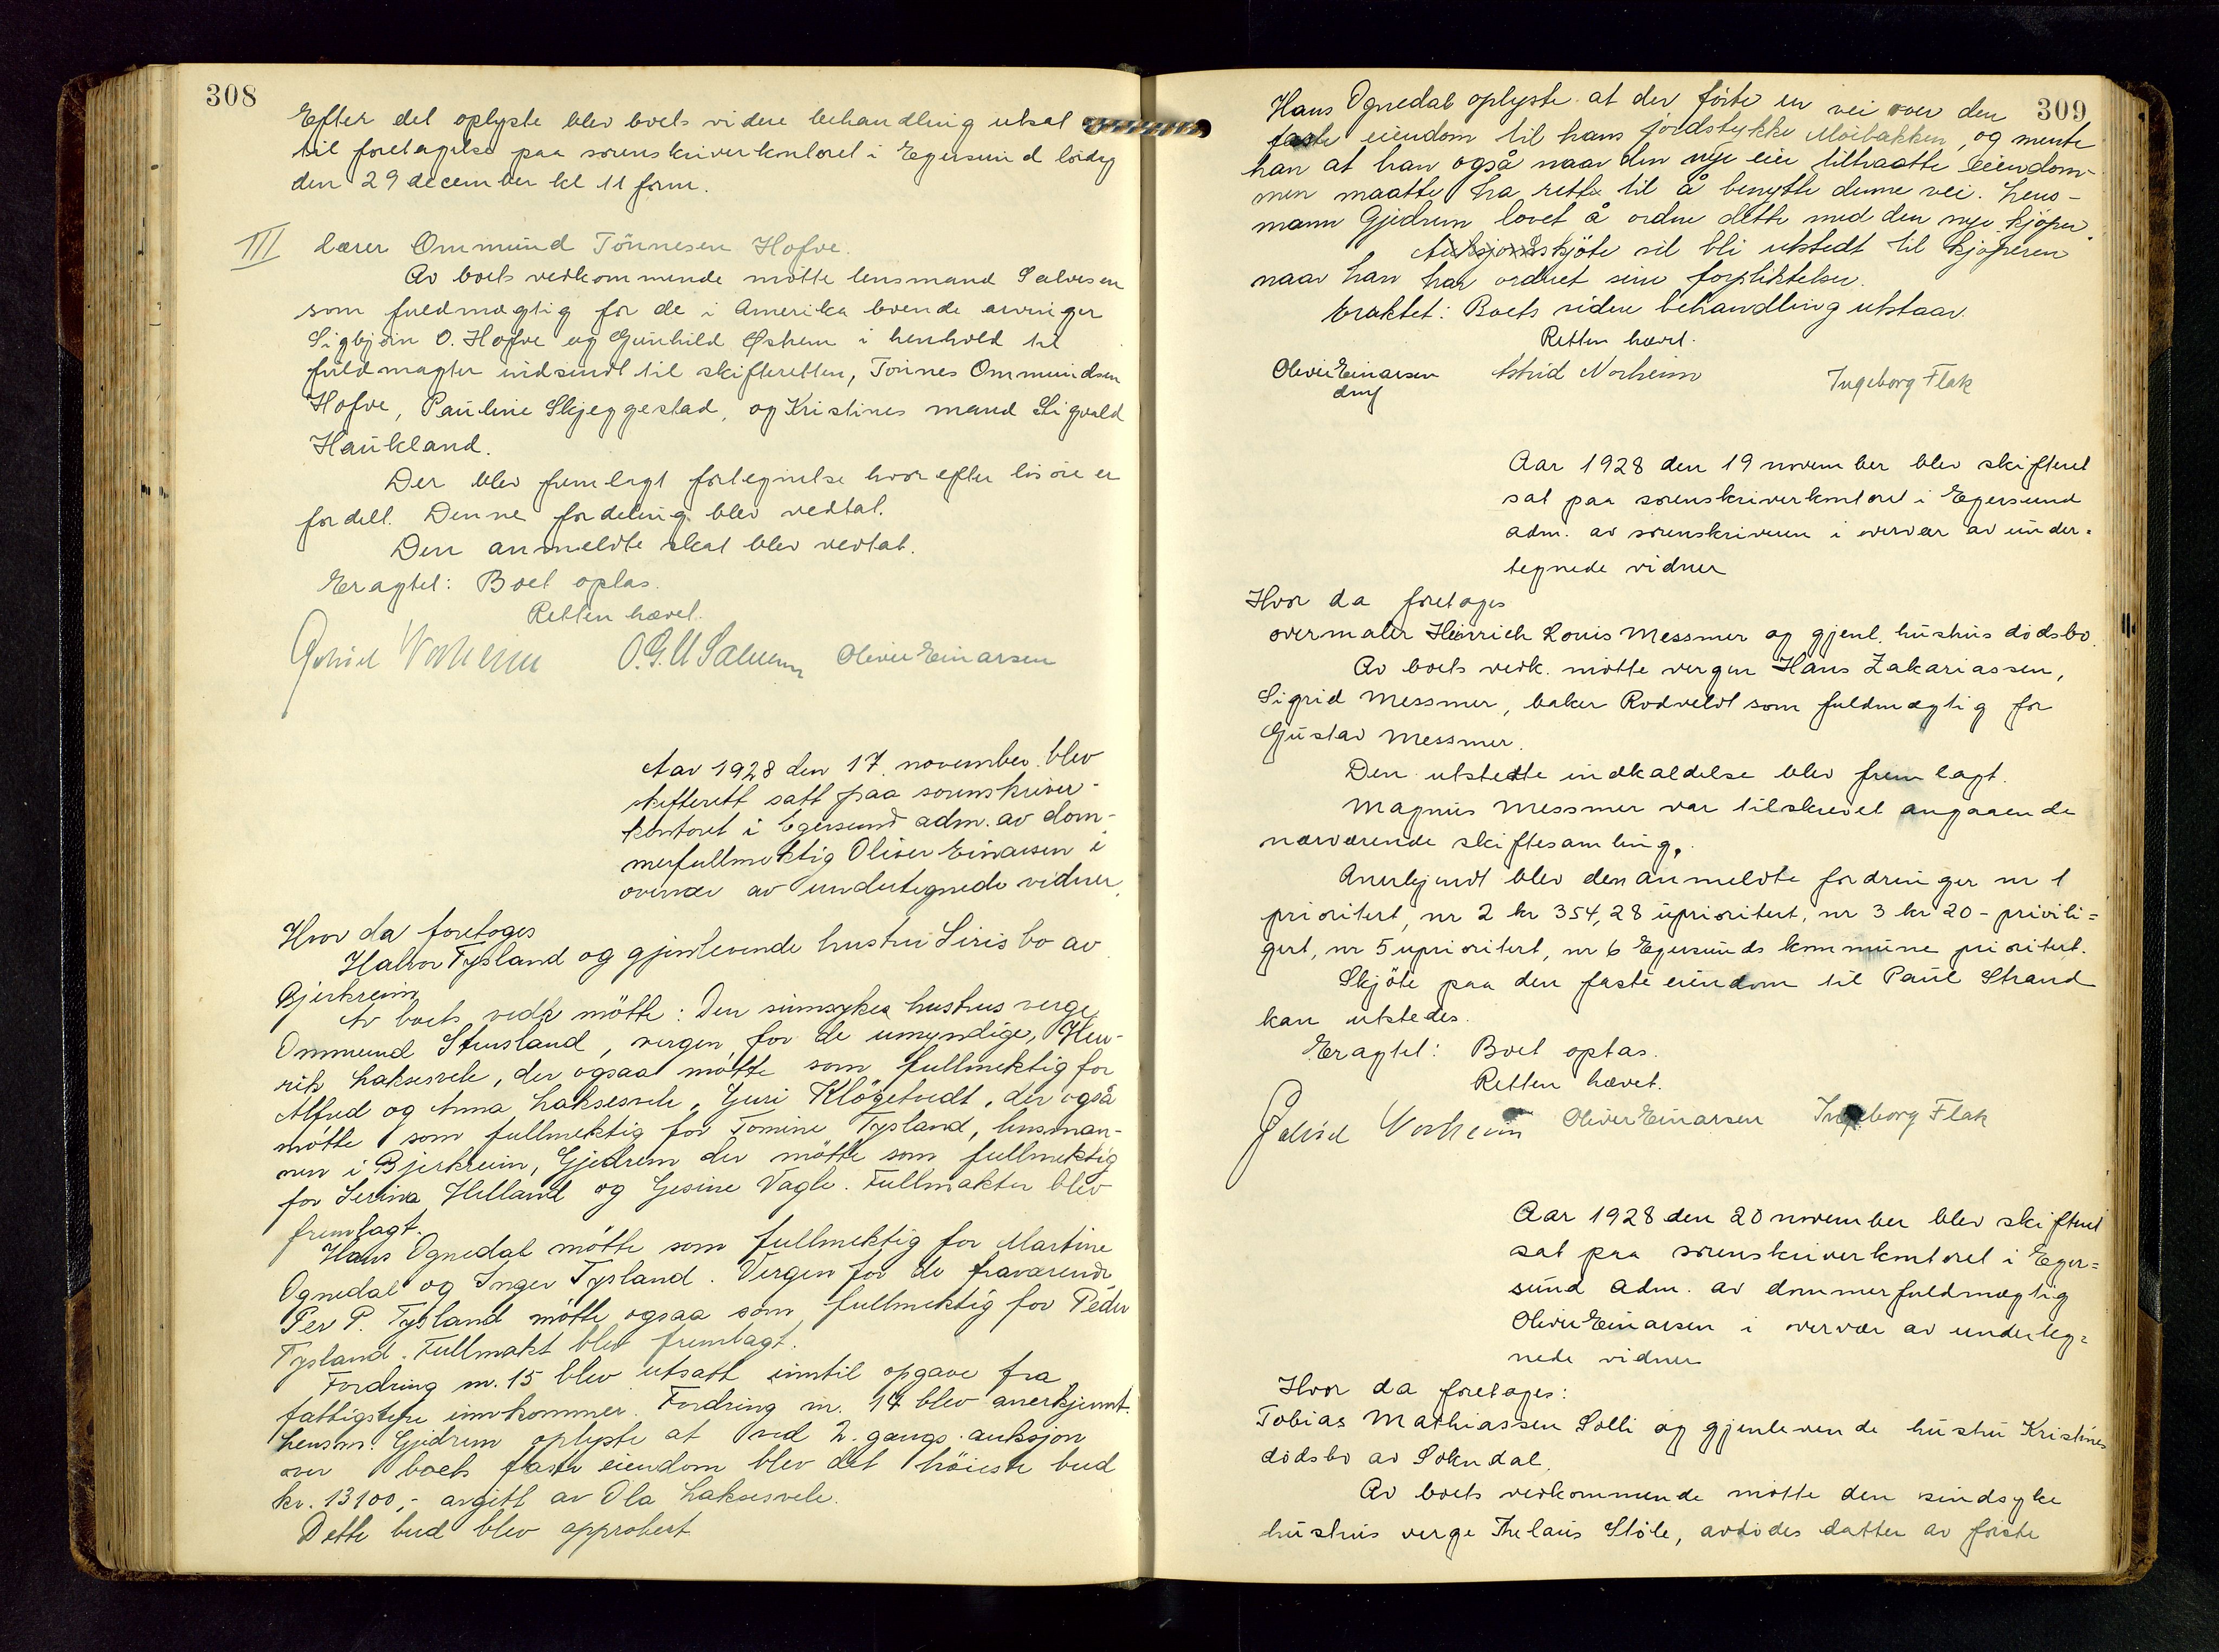 308
Efter det oplyste blev boets videre behandling utsat
til foretagelse paa sorenskriverkontoret i Egersund lördag
den 29 december kl 11 form.
III lærer Ommund Tönnesen Hofve.
Av boets vedkommende mötte lensmand Salvesen
som fuldmægtig for de i Amerika boende arvinger
Sigbjörn O. Hofve og Gunhild Östrem i henhold til
fuldmagter indsendt til skifteretten, Tönnes Ommundsen
Hofve, Pauline Skjeggestad, og Kristines mand Sigvald
Haukland.
Der blev fremlagt fortegnelse hvorefter lösöre er
fordelt. Denne fordeling blev vedtat.
Den anmeldte skat blev vedtat.
Eragtet: Boet optas.
Retten hævet.
Astrid Norheim O.G.U Salvesen Oliver Einarsen
Aar 1928 den 17. november blev
skifterett satt paa sorenskriver-
kontoret i Egersund adm. av dom-
merfullmektig Oliver Einarsen i
overvær av undertegnede vidner.
Hvor da foretoges
Halvor Tysland og gjenlevende hustru Siris bo av
Bjerkreim
Av boets vedk mötte: Den sinnsykes hustrus verge
Ommund Stensland, vergen for de umyndige, Hen-
rik Laksesvele, der ogsaa mötte som fullmektig for
Alfred og Anna Laksesvele, Guri Klögetvedt, der også
mötte som fullmektig for Tomine Tysland, lensman-
nen i Bjerkreim, Gjedrem der mötte som fullmektig
for Serina Helland og Gesine Vagle. Fullmakter blev
fremlagt.
Hans Ognedal mötte som fullmektig for Martine
Ognedal og Inger Tysland. Vergen for de fraværende
Per P. Tysland mötte ogsaa som fullmektig for Peder
Tysland. Fullmakt blev fremlagt.
Fordring nr. 15 blev utsatt inntil opgave fra
fattigstyre innkommer. Fordring nr. 17 blev anerkjennt.
Lensm. Gjedrem oplyste at ved 2. gangs auksjon
over boets faste eiendom blev det höieste bud
kr. 13100,- avgitt av Ola Laksesvele.
Dette bud blev approbert
309
Hans Ognedal oplyste at der förte en vei over den
faste eiendom til hans jordstykke Moibakken, og mente
han at han også naar den nye eier tiltraatte eiendom-
men maatte ha rett til å benytte denne vei. Lens-
mann Gjedrem lovet å ordne dette med den nye kjöper.
Auksjonsskjöte vil bli utstedt til kjöperen
naar han har ordnet sine forpliktelser.
Eraktet: Boets videre behandling utstaar.
Retten hævet.
Oliver Einarsen Astrid Norheim Ingeborg Flak
dmf
Aar 1928 den 19 november blev skifteret
sat paa sorenskriverkontoret i Egersund
adm. av sorenskriveren i overvær av under=
tegnede vidner
Hvor da foretoges
overmaler Heinrich Louis Messmer og gjenl. hustrus dödsbo.
Av boets vedk. mötte vergen Hans Zakariassen,
Sigrid Messmer, baker Rodveldt som fuldmægtig for
Gustav Messmer.
Den utstedte indkaldelse blev fremlagt.
Magnus Messmer var tilskrevet angaaende
nærværende skiftesamling.
Anerkjendt blev den anmeldte fordringer nr 1
prioritert, nr 2 kr 354,28 uprioritert, nr 3 kr 20- privili=
gert, nr 5 uprioritert, nr 6 Egersunds kommune prioritert.
Skjöte paa den faste eiendom til Paul Strand
kan utstedes.
Eragtet: Boet optas.
Retten hævet.
Astrid Norheim Oliver Einarsen Ingeborg Flak
Aar 1928 den 20 november blev skifteret
sat paa sorenskriverkontoret i Eger=
sund adm. av dommerfuldmægtig
Oliver Einarsen i overvær av underteg=
nede vidner
Hvor da foretoges:
Tobias Mathiassen Solli og gjenlevende hustru Kristines
dödsbo av Sokndal.
Av boets vedkommende mötte den sindsyke
hustrus verge Thelaus Stöle, avdödes datter av förste